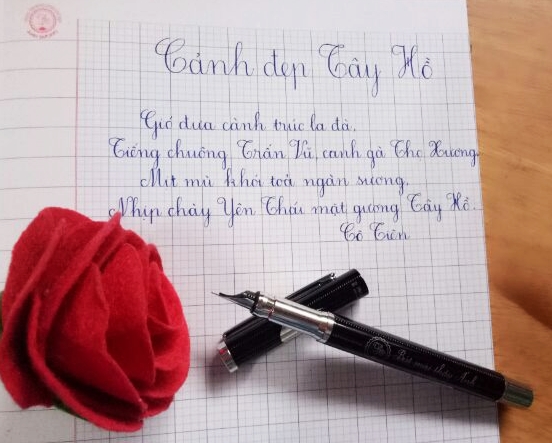 Cảnh đẹp Tây Hồ
Gió đưa cành trúc la đà,
Tiếng chuông Trấn Vũ, canh gà Thọ Xương
Mịt mù khói toả ngàn sương,
Nhịp chày Yên Thái mặt gương Tây Hồ.
Cô Tiên